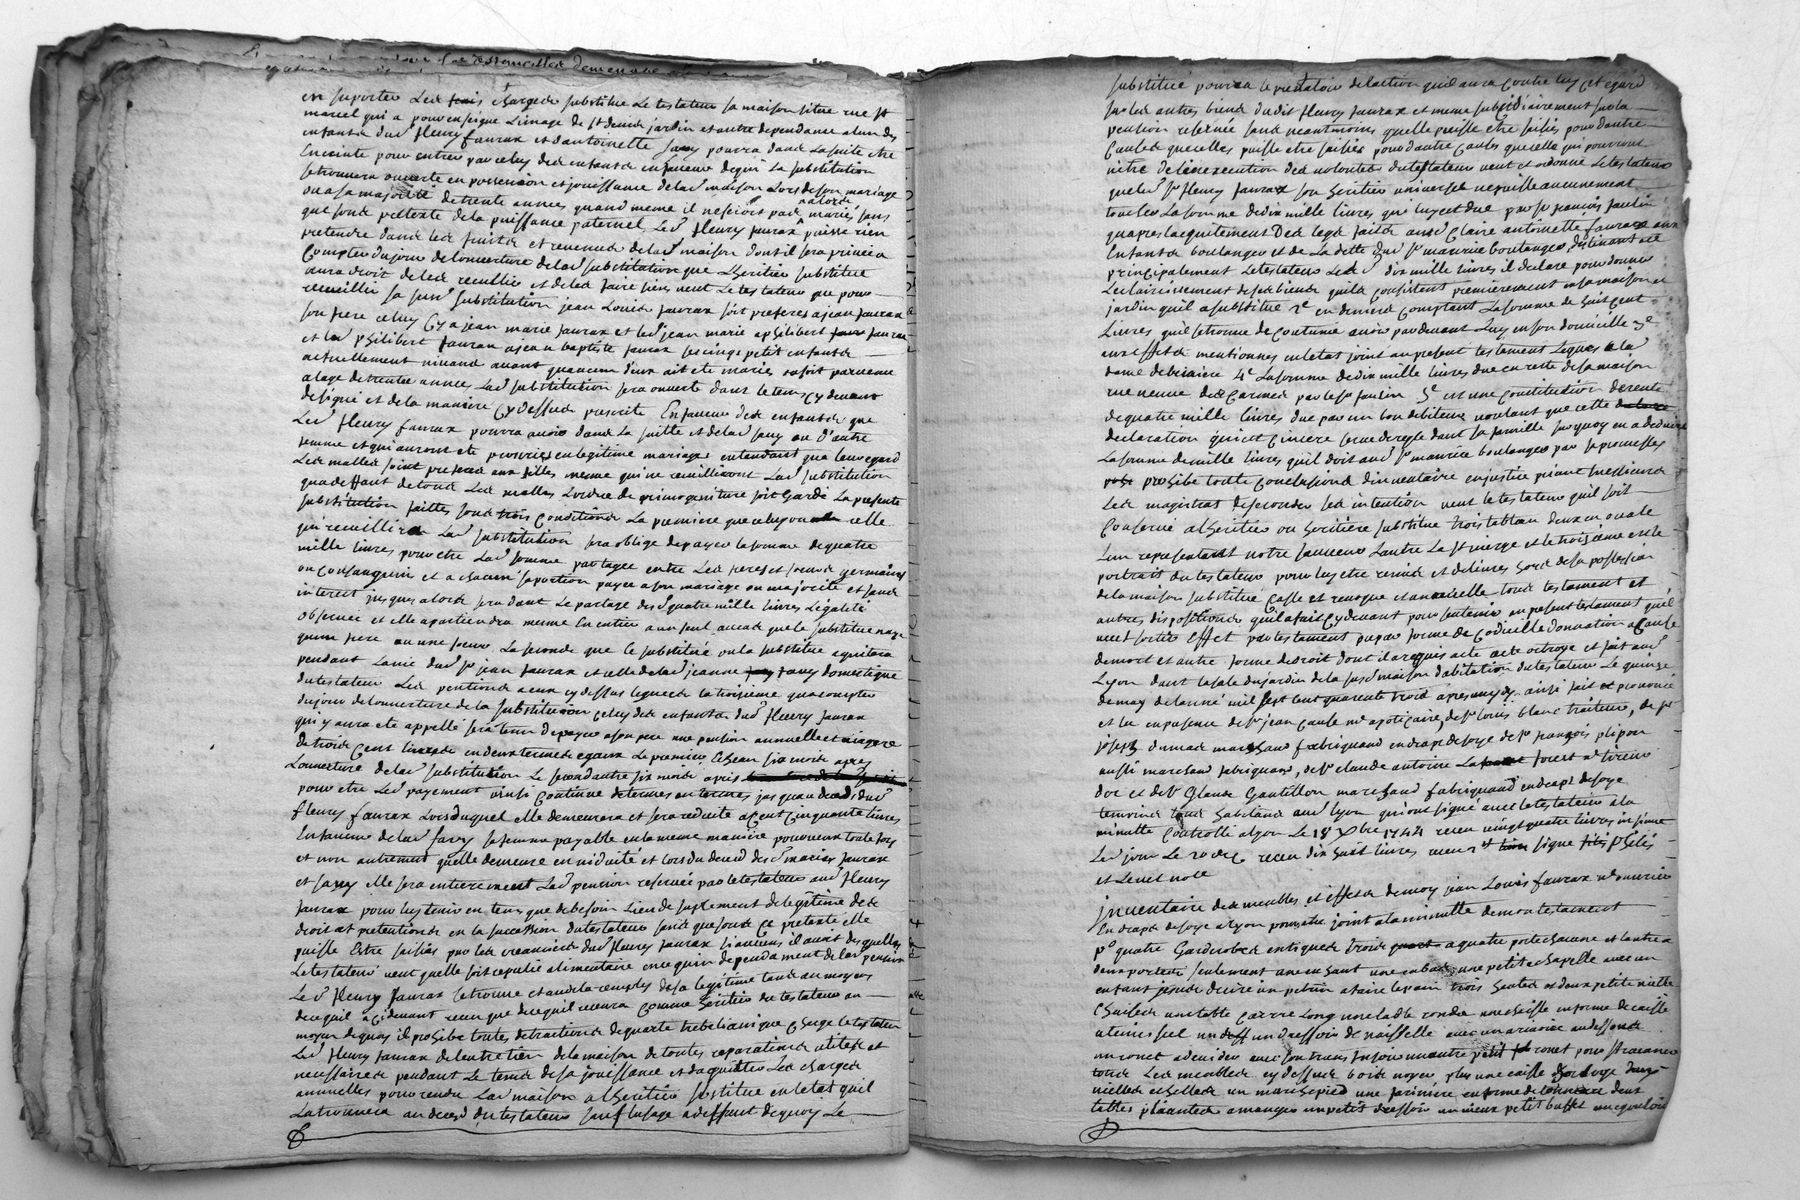 en suporter Les frais charge de substitue Le testateur sa maison situe rue St
marcel qui a pour enseigne L'image de St denis jardin et autre dependance a l'un des
enfants dud fleury faurax et d'antoinette favy pourra dans La suite etre
Enceinte pour entrer par celuy des enfants en faveur de qui La substitution
se trouvera ouverte en possession et jouissance de lad maison Lors de son mariage
ou a sa majorité de trente années quand meme il ne seroit pas alors marié sans
que sous pretexte de la puissance paternel Led fleury faurax puisse rien
pretendre dans les fruits et revenus de lad maison dont il sera privé a
Compter du jour de Louverture de lad substitution que L'heritier substitué
aura droit de les recullir et de les faire siens veut Le testateur que pour
recueillir sa susd substitution jean Louis faurax soit preferes a jean faurax
son frere celuy cy a jean marie faurax et led jean marie a philibert faurax
et led philibert faurax a jean baptiste faurax ses cinqs petit enfants
actuellement vivans avant qu'aucun d'eux ait ete mariés ou soit parvenu
a l'age de trente années Lad substitution sera ouverte dans le tems cy devant
designé et de la maniere cy dessus prescrite En faveur des enfants que
Led fleury faurax pourra avoir dans La suitte et de lad favy ou d'autre
femme et qui auront ete procréés en legitime mariage entendant qua leur egard
Les malles soint preferes aux filles meme qui ne recuilliront Lad substitution
qua deffaut de tous Les malles L'ordre de primogeniture soit Gardé La presente
substitution faittes sous trois conditions La premiere que celuy ou celle
qui recuillira Lad substitution sera obligé de payer la somme de quatre
mille livres pour etre Lad somme partagée entre Les freres et soeurs germains
ou consanguin et a chacun sa portion payée a son mariage ou majorité et sans
interest jusques alors sera dans Le partage des quatre mille livres L'egalité
observée et elle apartiendra meme En entier a un seul au cas que le substitué naye
qu'un frere ou une soeur La seconde que le substitué ou la substitué aquitera
pendant La vie dud Sr jean faurax et celle de lad jeanne favy domestique
du testateur Les pentions a eux cy dessus legués La troisieme qua compter
du jour de Louverture de la substitution celuy des enfants dud fleury faurax
qui y aura ete appellé sera tenu de payer a son pere une pension annuelle et viagere
de trois cent livres en deux termes egaux Le premier Echeant six mois apres
Louverture de lad substitution Le second autre six mois apris
pour etre Led payement ainsi continué de termes en termes jusquau deces dud
fleury faurax Lors duquel elle demeurera et sera reduite a cent cinquante livres
En faveur de lad favy sa femme payable en la meme maniere pourveux toute fois
et non autrement quelle demeure en viduité et lors du deces des d mariés faurax
et favy elle sera entierement Lad pension reservée par le testateur aud fleury
faurax pour luy tenir en tems que de besoin Lieu de suplement de legitime de
droit et pretentions en la succession du testateur sans que sous ce pretexte elle
puisse Estre saisies par les creanciers dud fleury faurax si aucuns il avoit desquelles
Le testateur veut quelle soit reputée alimentaire en ce quin dependament de lad pension
Le d fleury faurax se trouve et au dela remplis de sa legitime tant au moyen
de ce quil a cy devant receu que de ce quil recevra comme heritier du testateur au
moyen de quoy il prohibe toutes detractions de quarte trebelianique charge Le testateur
Led fleury faurax de l'entretien de la maison de toutes reparations utiles et
necessaires pendant Le tems de sa jouissance et d'aquitter Les charges
annuelles pour rendre Lad maison a L'heritier substitué en l'etat quil
La trouvera au deces du testateur sauf L'usage a deffaut de quoy Le
substitué pourra se prevaloir de laction quil aura contre luy cet egard
sur les autres biens dudit fleury faurax et meme subsidiairement sur la
pension reservée sans neantmoins quelle puisse etre saisies pour dautre
causes quelles puisse etre saisies pour d'autre causes que celle qui pourront
nitre de l'inexecution des volontés du testateur veut et ordonne Le testateur
que led Sr fleury faurax son heritier universel ne puisse aucunement
toucher La somme de dix mille livres qui luy est due par Sr françois faulin
qu'apres lacquitement Des legs fait aud Claire antoinette faurax aux
Enfants boulanger et de La dette dud Sr maurice boulanger, destinant a ce
principalement Le testateur Lesd dix mille livres il declare pour donner
L'eclaircissement de ses biens quils consistent premierement en sa maison et
jardin quil a substitué 2e en deniers comptant La somme de huit cent
Livres quil se trouve de coutume avoir par devant Luy en son domicille 3e
aux effets mentionnés en l'etat joint au present testament Legués a la
dame debraiere 4e La somme de dix mille livres due en reste de sa maison
rue neuve des carmes par le Sr faulin 5e est une constitution de rente
de quatre mille livres due par un bon debiteur voulant que cette
declaration qui est cincere serve de regle dans sa famille sur quoy en a deduire
La somme de mille livres quil doit aud Sr maurice boulanger par sa promesses
prohibe toutte conclusions d'inventaire en justice priant messieurs
Les magistrats de seconder ses intention veut le testateur quil soit
Conservé a L'heritier ou heritiere substitué trois tableau deux en ovale
L'un representant notre sauveur L'autre La Ste vierge et le troisieme est le
portrait du testateur pour luy etre remis et delivrés hors de sa possession
de la maison substitué casse et revoque et annuelle tous testament et
autres dispositions quil a fait cy devant pour sen tenir au present testament quil
veut sortir Effet par testament ou par forme de codicille donnation a cause
de mort et autre forme de droit dont il a requis acte acte octroyé et fait aud
Lyon dans la sale du jardin de la susd maison d'abitation du testateur Le quinze
de may de lannée mil sept cent quarente trois apres midy ainsi fait et prononcé
et lu en presence de Sr jean causse me apoticaire, de Sr louis blanc traiteur, de Sr
joseph dumas marchand fabriquand en drap de soye de Sr françois plipon
aussi marchand fabriquand, de Sr claude antoine La forest tireur
d'or et de Sr Glaude Gantillon marchand fabriquand en drap de soye
temoins tous habitans aud Lyon qui ont signé avec le testateur a la
minutte controllé a Lyon Le 18e Xbre 1744 receu vingt quatre livres insinué
Led jour Le 20 dud receu dix huit livres receu signé philis
et Levet note
Inventaire des meubles et effets de moy jean Louis faurax me ouvrier
En draps de soye a Lyon pour etre joint a la minutte de mon testament
Po quatre Garderobes entiques trois a quatre porte chacune et lautre a
deux portes seulement une en haut une en bas, une petite chapelle avec un
enfant jesus de cire un petrin a faire le pain trois hautes et deux petite vielle
chaises une table carrée Long une table ronde une chaise en forme de caisse
a tenir sel un dressoir de vaisselle avec un armoire au dessous
un rouet a devider avec son travs En soir un autre petit rouet pour st racaner
tous Les meubles cy dessus bois noyer plus une caisse horloge
vielles et belles un marchepied une farinere en forme de deux
tables pliantes a manger un petit dressoir un vieux petit buffet avec gouloir